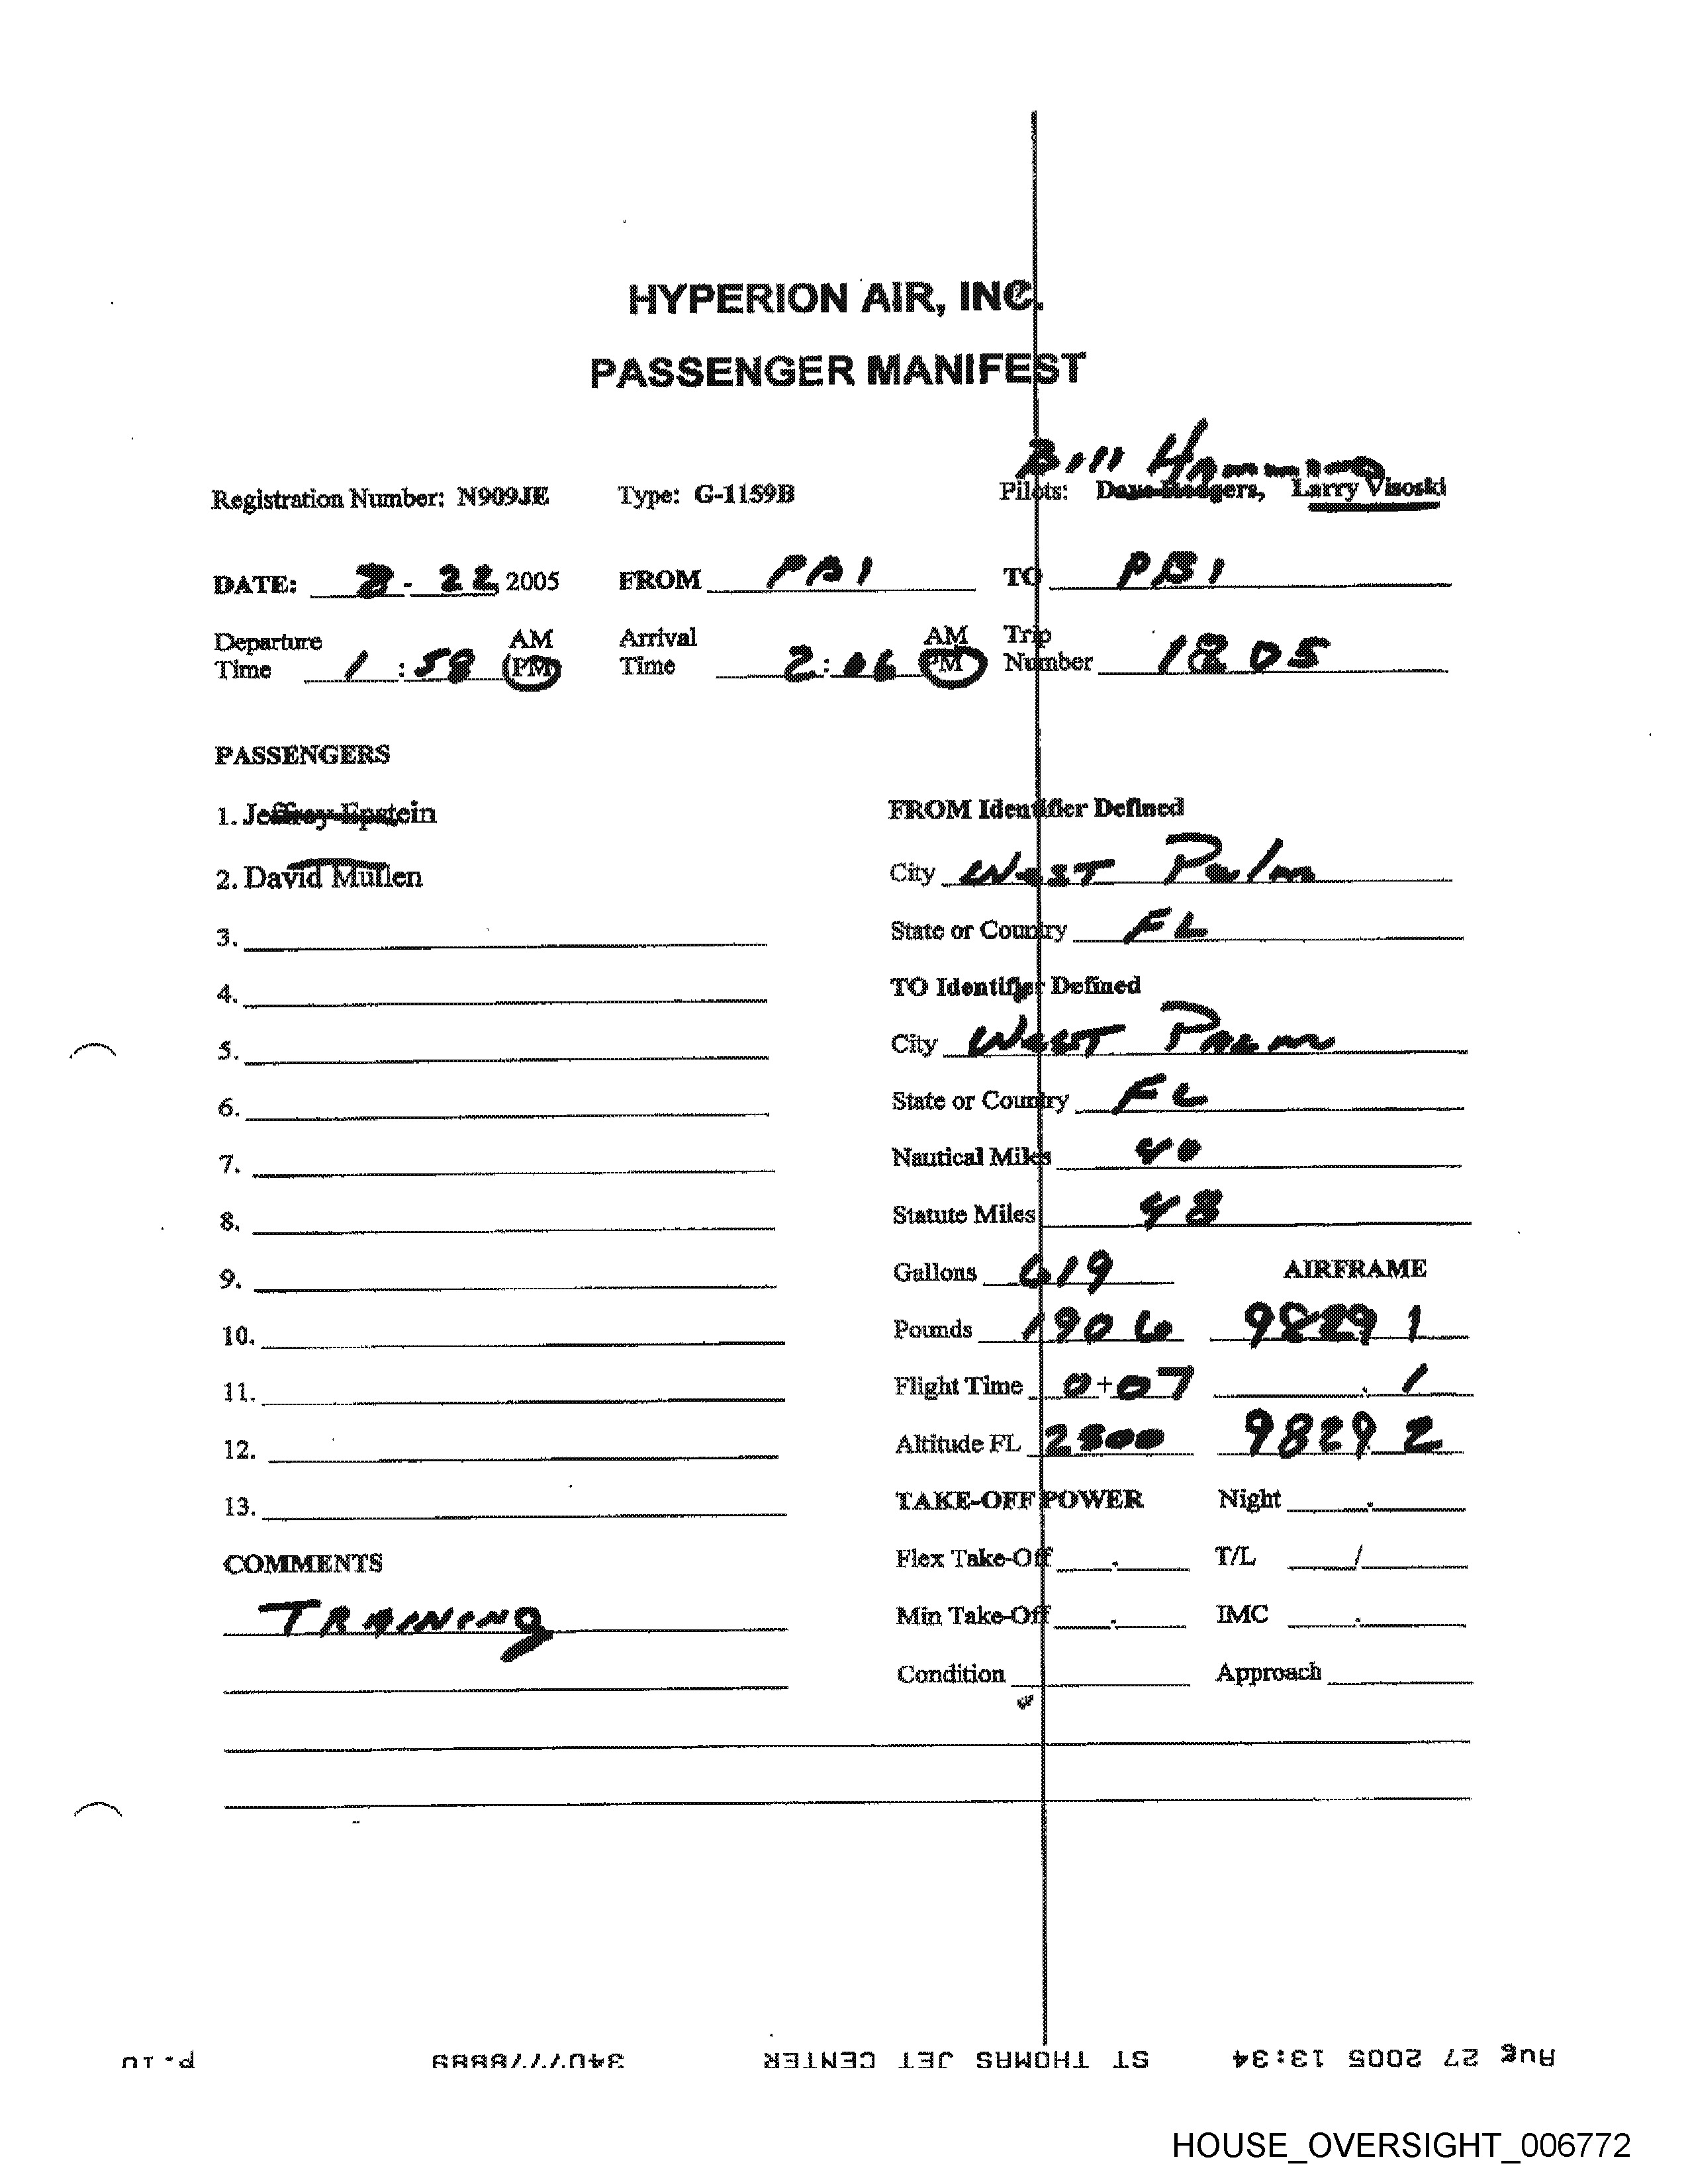 HYPERION AIR, INC.
PASSENGER MANIFEST
Bill
Registration Number: N909JE Type: G-1159B Pilots: Dave Rodgers, Larry Visoski
DATE: 8 - 22 2005 FROM PBI TO PBI
Departure AM Arrival AM Trip
Time 1 : 58 PM Time 2 : 06 PM Number 1805
PASSENGERS
1. Jeffrey Epstein FROM Identifier Defined
2. David Mullen City West Palm
3. State or Country FL
4. TO Identifier Defined
5. City West Palm
6. State or Country FL
7. Nautical Miles 40
8. Statute Miles 48
9. Gallons 619 AIRFRAME
10. Pounds 1906 9829 1
11. Flight Time 0+07 . 1
12. Altitude FL 2500 9829 2
13. TAKE-OFF POWER Night .
COMMENTS Flex Take-Off . T/L /
TRAINING Min Take-Off . IMC .
Condition Approach
Aug 27 2005 13:34 ST THOMAS JET CENTER 3407778889 P.10
HOUSE_OVERSIGHT_006772